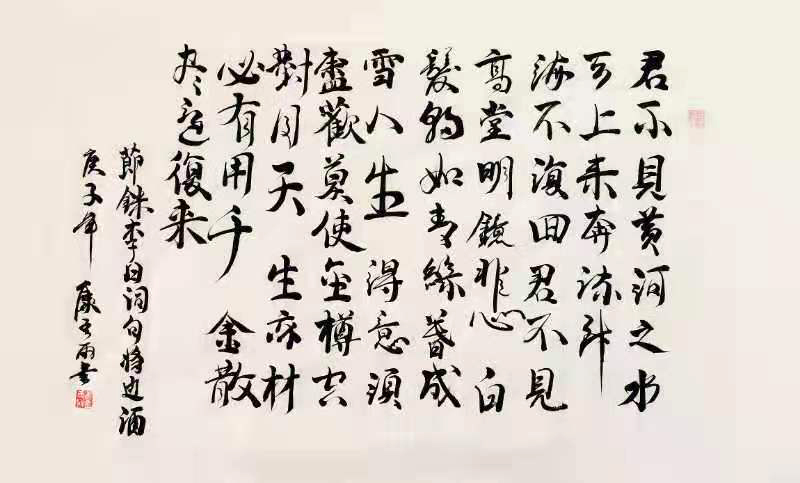 君不見黄河之水
天上来奔流到
海不復回君不見
高堂明鏡悲白
髮朝如青絲暮成
雪人生得意須
盡歡莫使金樽空
對月天生我材
必有用千金散
尽還復来
節錄李白词句将进酒
庚子年 康雨书